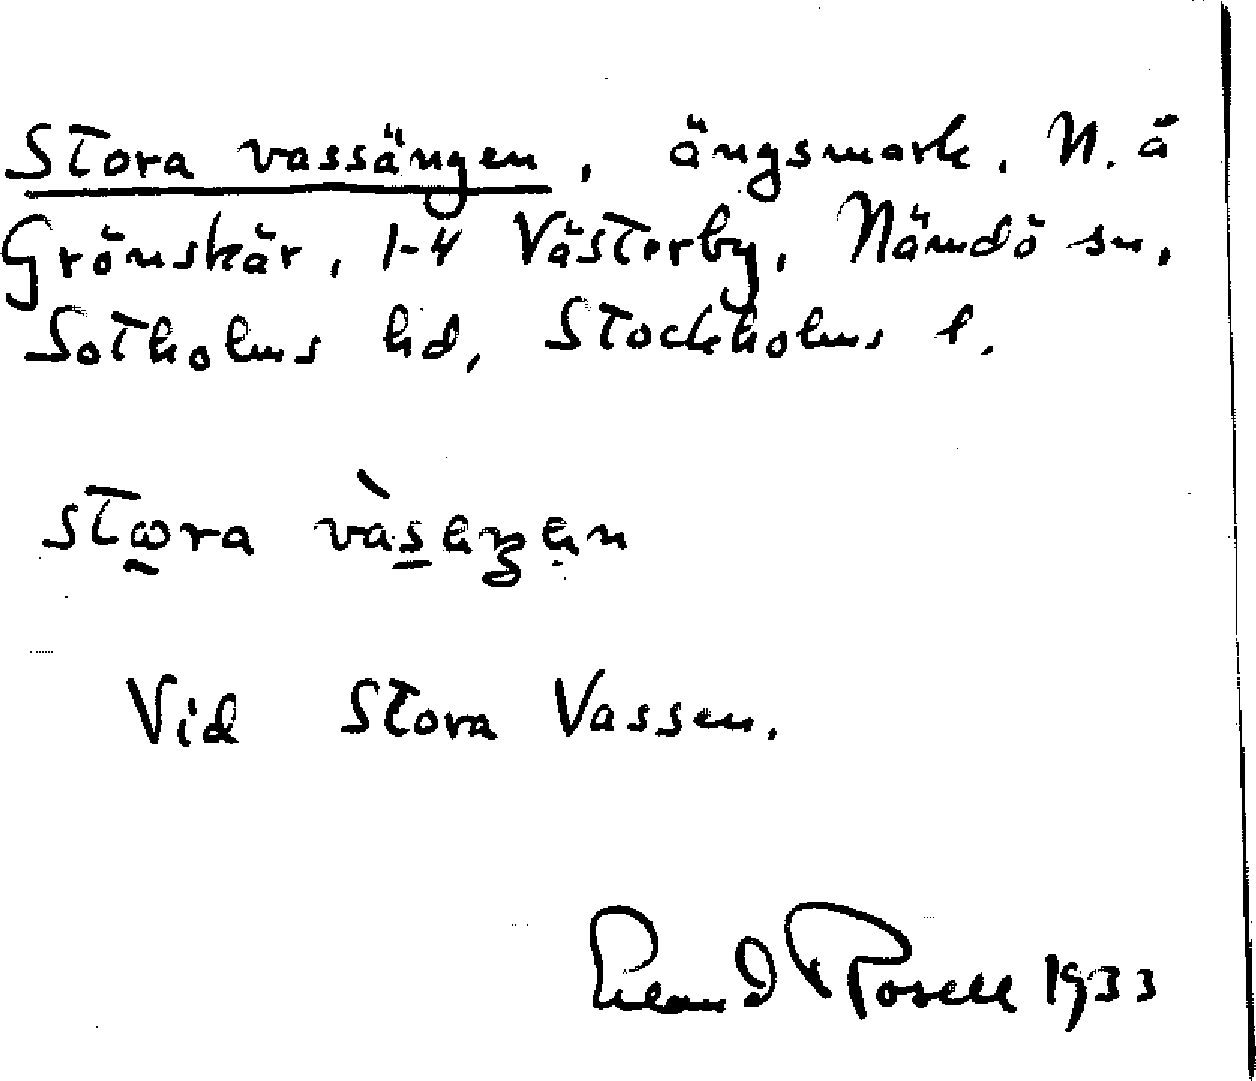 Stora vassängen, ängsmark. N. å
Grönskär, 1-4 Västerby, Nämdö sn,
Sotholms hd, Stockholms l.
Vid Stora Vassen.
Rosell 1933